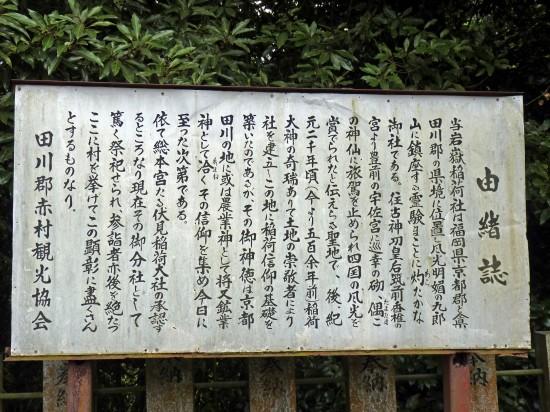 由緒誌
当岩嶽稲荷社は福岡県京都郡と県
田川郡の県境に位置し風光明媚の九郎
山に鎮座する霊験まことに灼たかな
御社である。往古神功皇右筑前香椎の
宮より豊前の宇佐宮に巡幸の砌偶〻
の神仙に旅駕を止められ四国の風光を
賞でられたと伝えらる聖地で、後紀
元二千年頃(今より五百余年前)稲荷
大神の奇瑞ありて土地の崇敬者により
社を建立しこの地に稲荷信仰の基礎を
築いたのであるが、その御神徳は京都
田川の地に或は農業神として将又鉱業
神として洽くその信仰を集め今日に
至った次第である。
依て総本宮たる伏見稲荷大社の承認す
るところなり現在その御分社として
篤く祭祀せられ、参詣者亦後を絶たず
ここに村を挙げてこの顕彰に盡くさん
とするものなり。
田川郡赤村観光協会
奉納
奉納
奉納
奉納